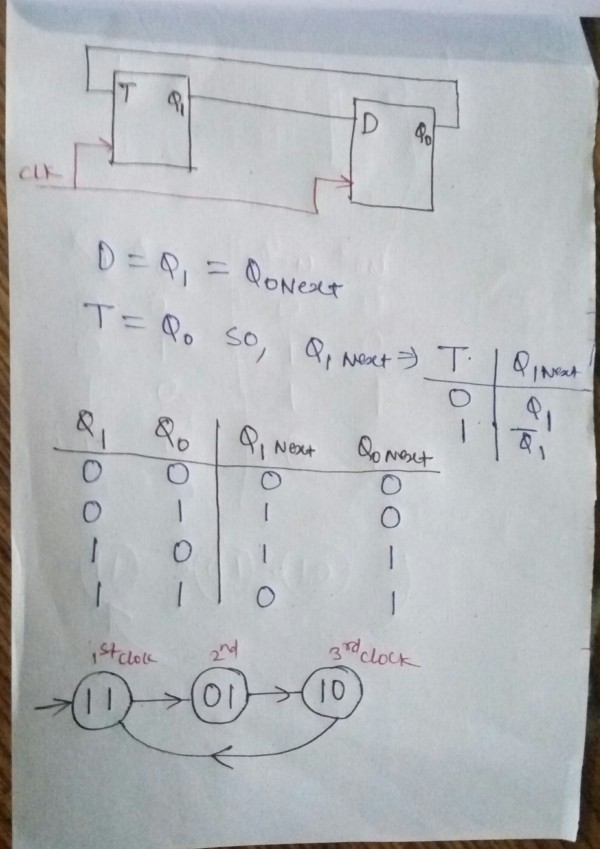 T Q₁
D Q₀
CLK
D = Q₁ = Q₀Next
T = Q₀ so, Q₁Next ⇒
T. Q₁Next
0 Q₁
1 Q̅₁
Q₁ Q₀ Q₁Next Q₀Next
0 0 0 0
0 1 1 0
1 0 1 1
1 1 0 1
1st clock 2nd 3rd clock
11 01 10